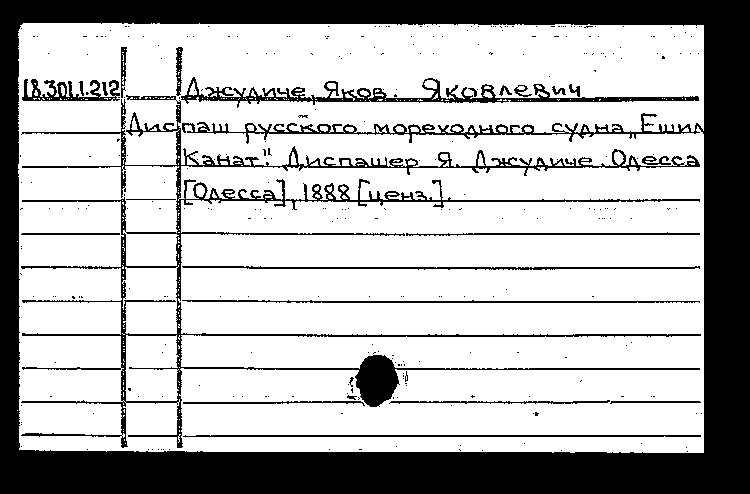 18.301.1.212 Джудиче, Яков. Яковлевич
Диспаш русского мореходного судна „Ешил
Канат." Диспашер Я. Джудиче. Одесса
[Одесса], 1888 [ценз.].